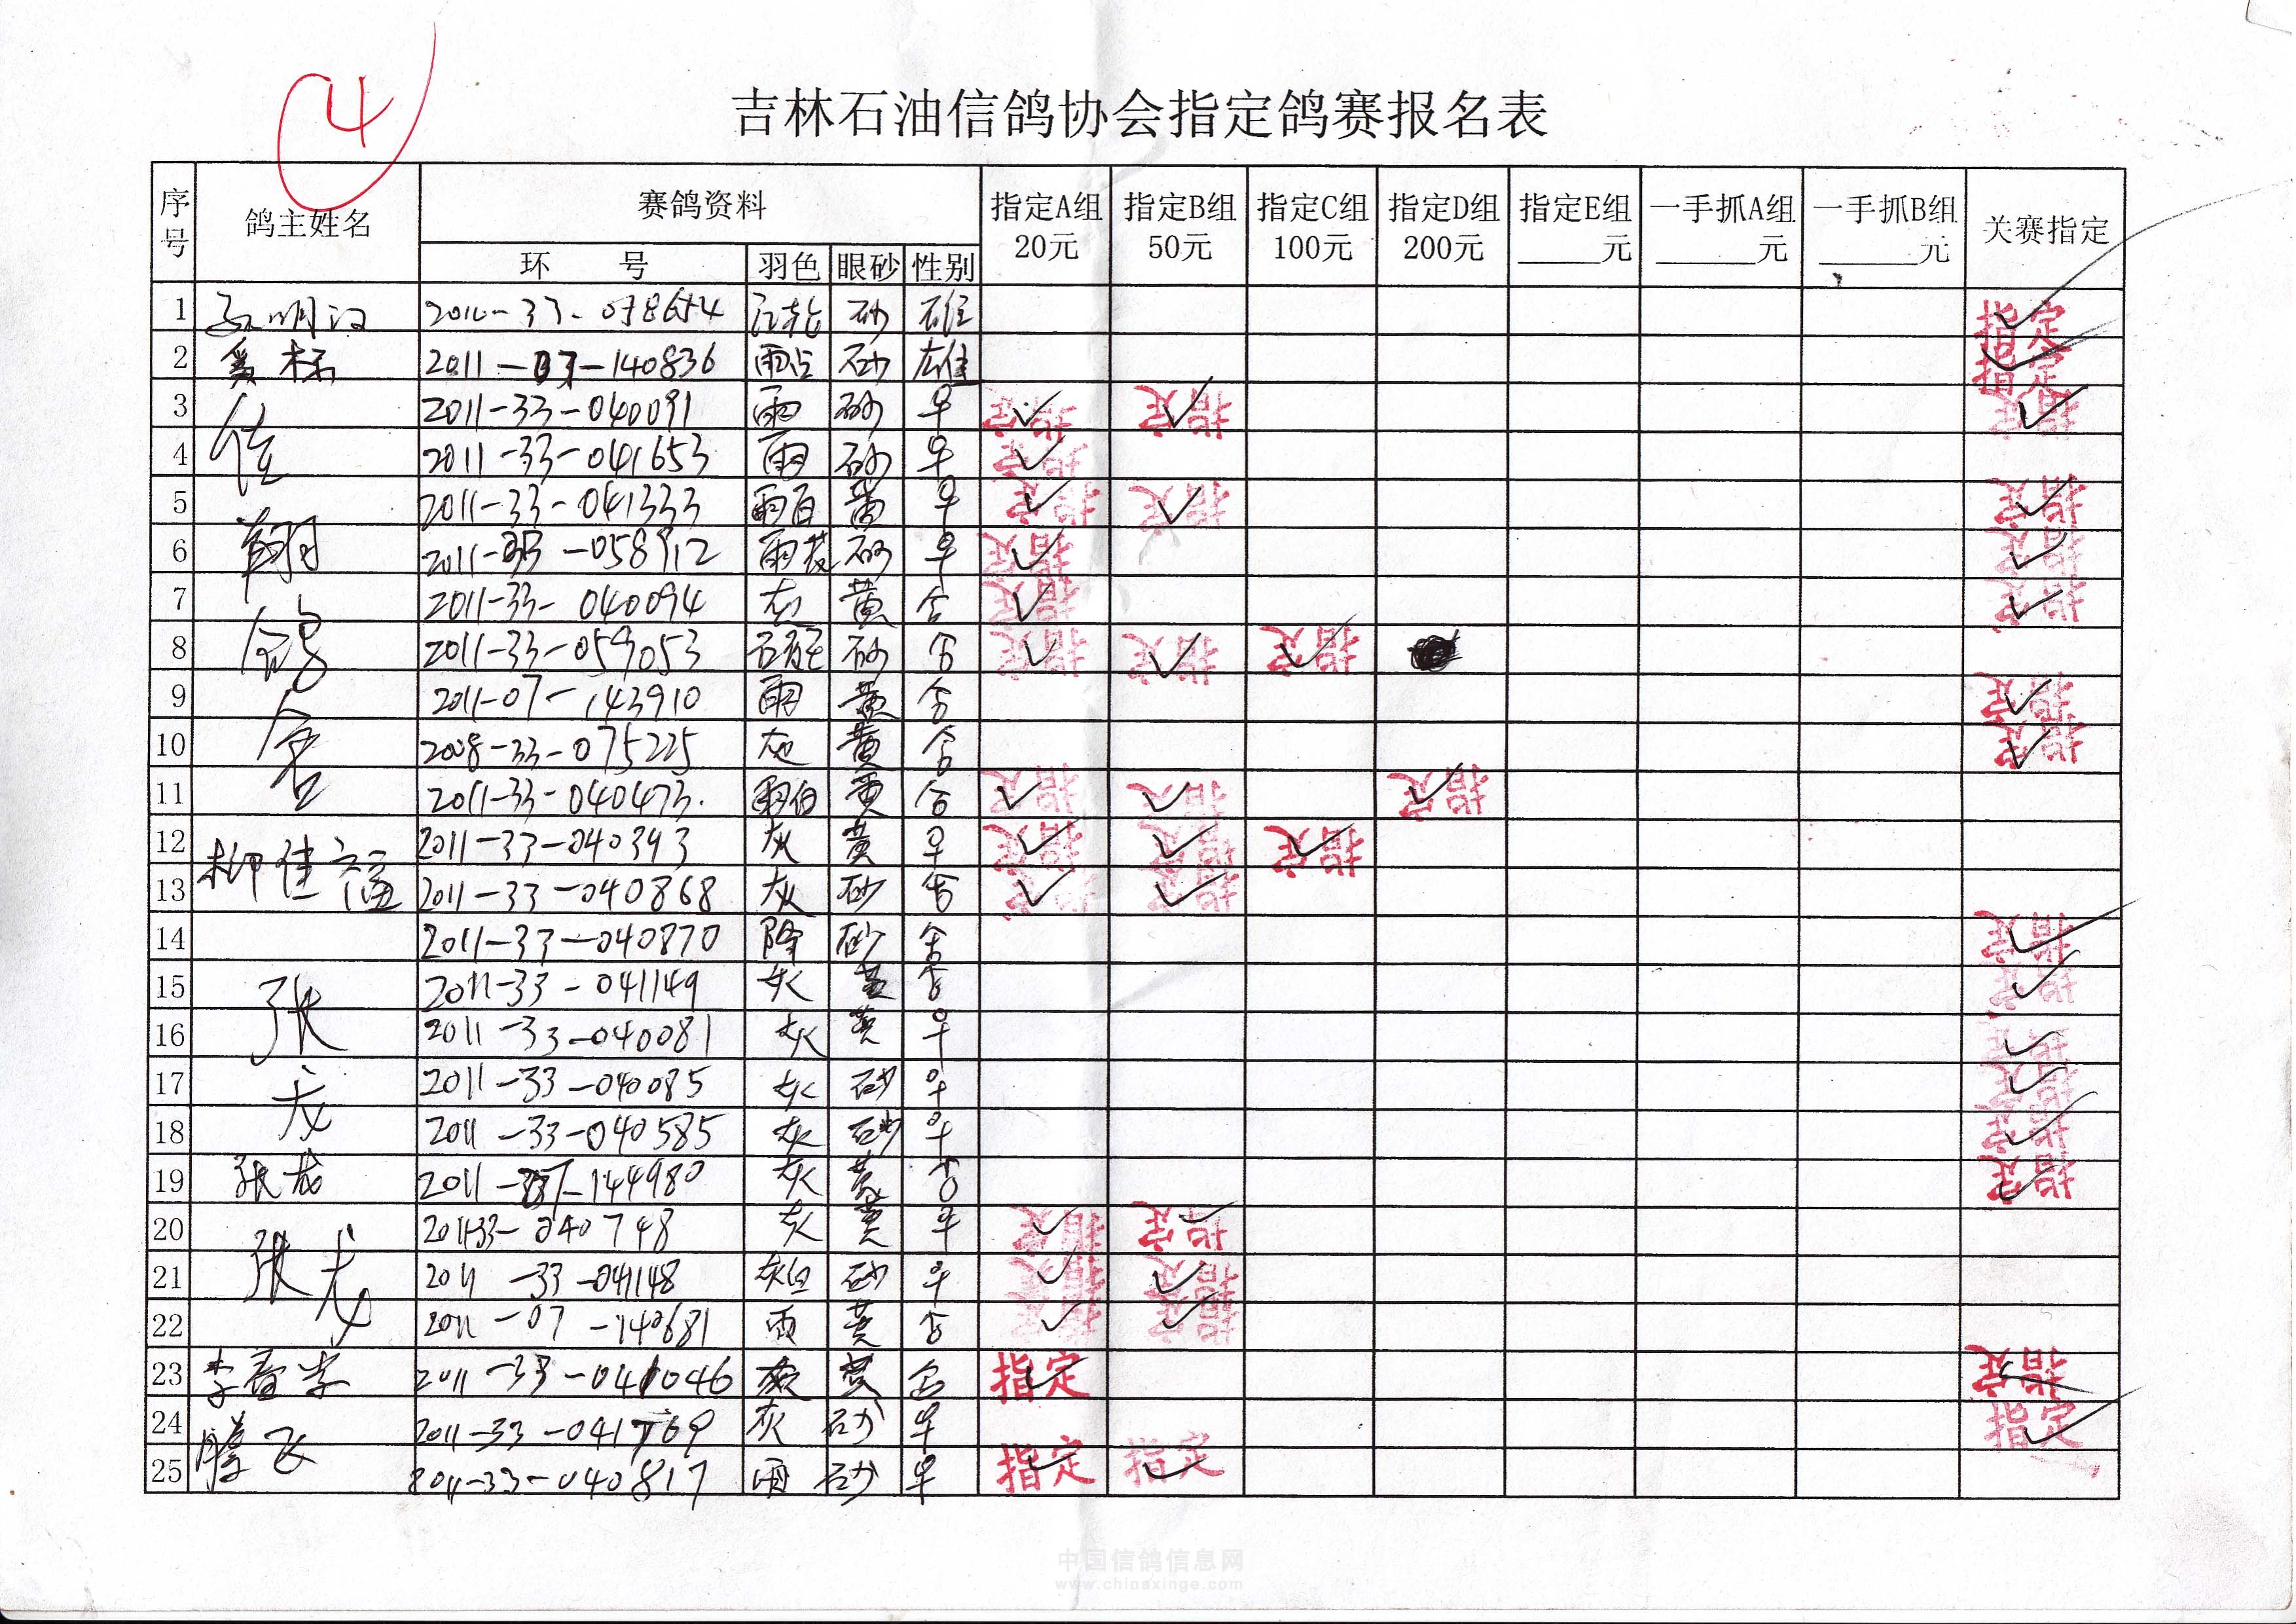 4
吉林石油信鸽协会指定鸽赛报名表
序号 鸽主姓名 赛鸽资料 指定A组 20元 指定B组 50元 指定C组 100元 指定D组 200元 指定E组 ____元 一手抓A组 ____元 一手抓B组 ____元 关赛指定
环 号 羽色 眼砂 性别
1 明汉 砂 雄 指定
2 2011-07-140836 雨点 砂 雄 指定
3 2011-33-040091 雨 砂 ♀ 指定 指定 指定
4 佳 2011-33-041653 雨 砂 ♀ 指定
5 2011-33-041333 雨白 黄 ♀ 指定 指定 指定
6 翔 2011-33-058912 雨花 砂 ♀ 指定 指定
7 2011-33-040094 灰 黄 ♂ 指定 指定
8 鸽 2011-33-059053 砂 ♂ 指定 指定 指定
9 2011-07-143910 雨 黄 ♂ 指定
10 舍 2008-33-075225 灰 黄 ♂ 指定
11 2011-33-040473 雨白 黄 ♂ 指定 指定 指定
12 柳佳 2011-33-040393 灰 黄 ♀ 指定 指定 指定
13 2011-33-040868 灰 砂 ♂ 指定 指定
14 2011-33-040870 砂 ♂ 指定
15 张 2011-33-041149 灰 黄 ♂ 指定
16 2011-33-040081 灰 黄 ♀ 指定
17 龙 2011-33-040085 灰 砂 ♀ 指定
18 2011-33-040585 灰 砂 ♀ 指定
19 张龙 2011-07-144980 灰 黄 ♂ 指定
20 2011-33-040748 灰 黄 ♀ 指定 指定
21 张龙 2011-33-041148 灰白 砂 ♀ 指定 指定
22 2011-07-140681 雨 黄 ♂ 指定 指定
23 李春学 2011-33-041046 灰 黄 ♂ 指定 指定
24 腾飞 2011-33-041769 灰 砂 ♀ 指定
25 2011-33-040817 雨 砂 ♀ 指定 指定
中国信鸽信息网
www.chinaxinge.com